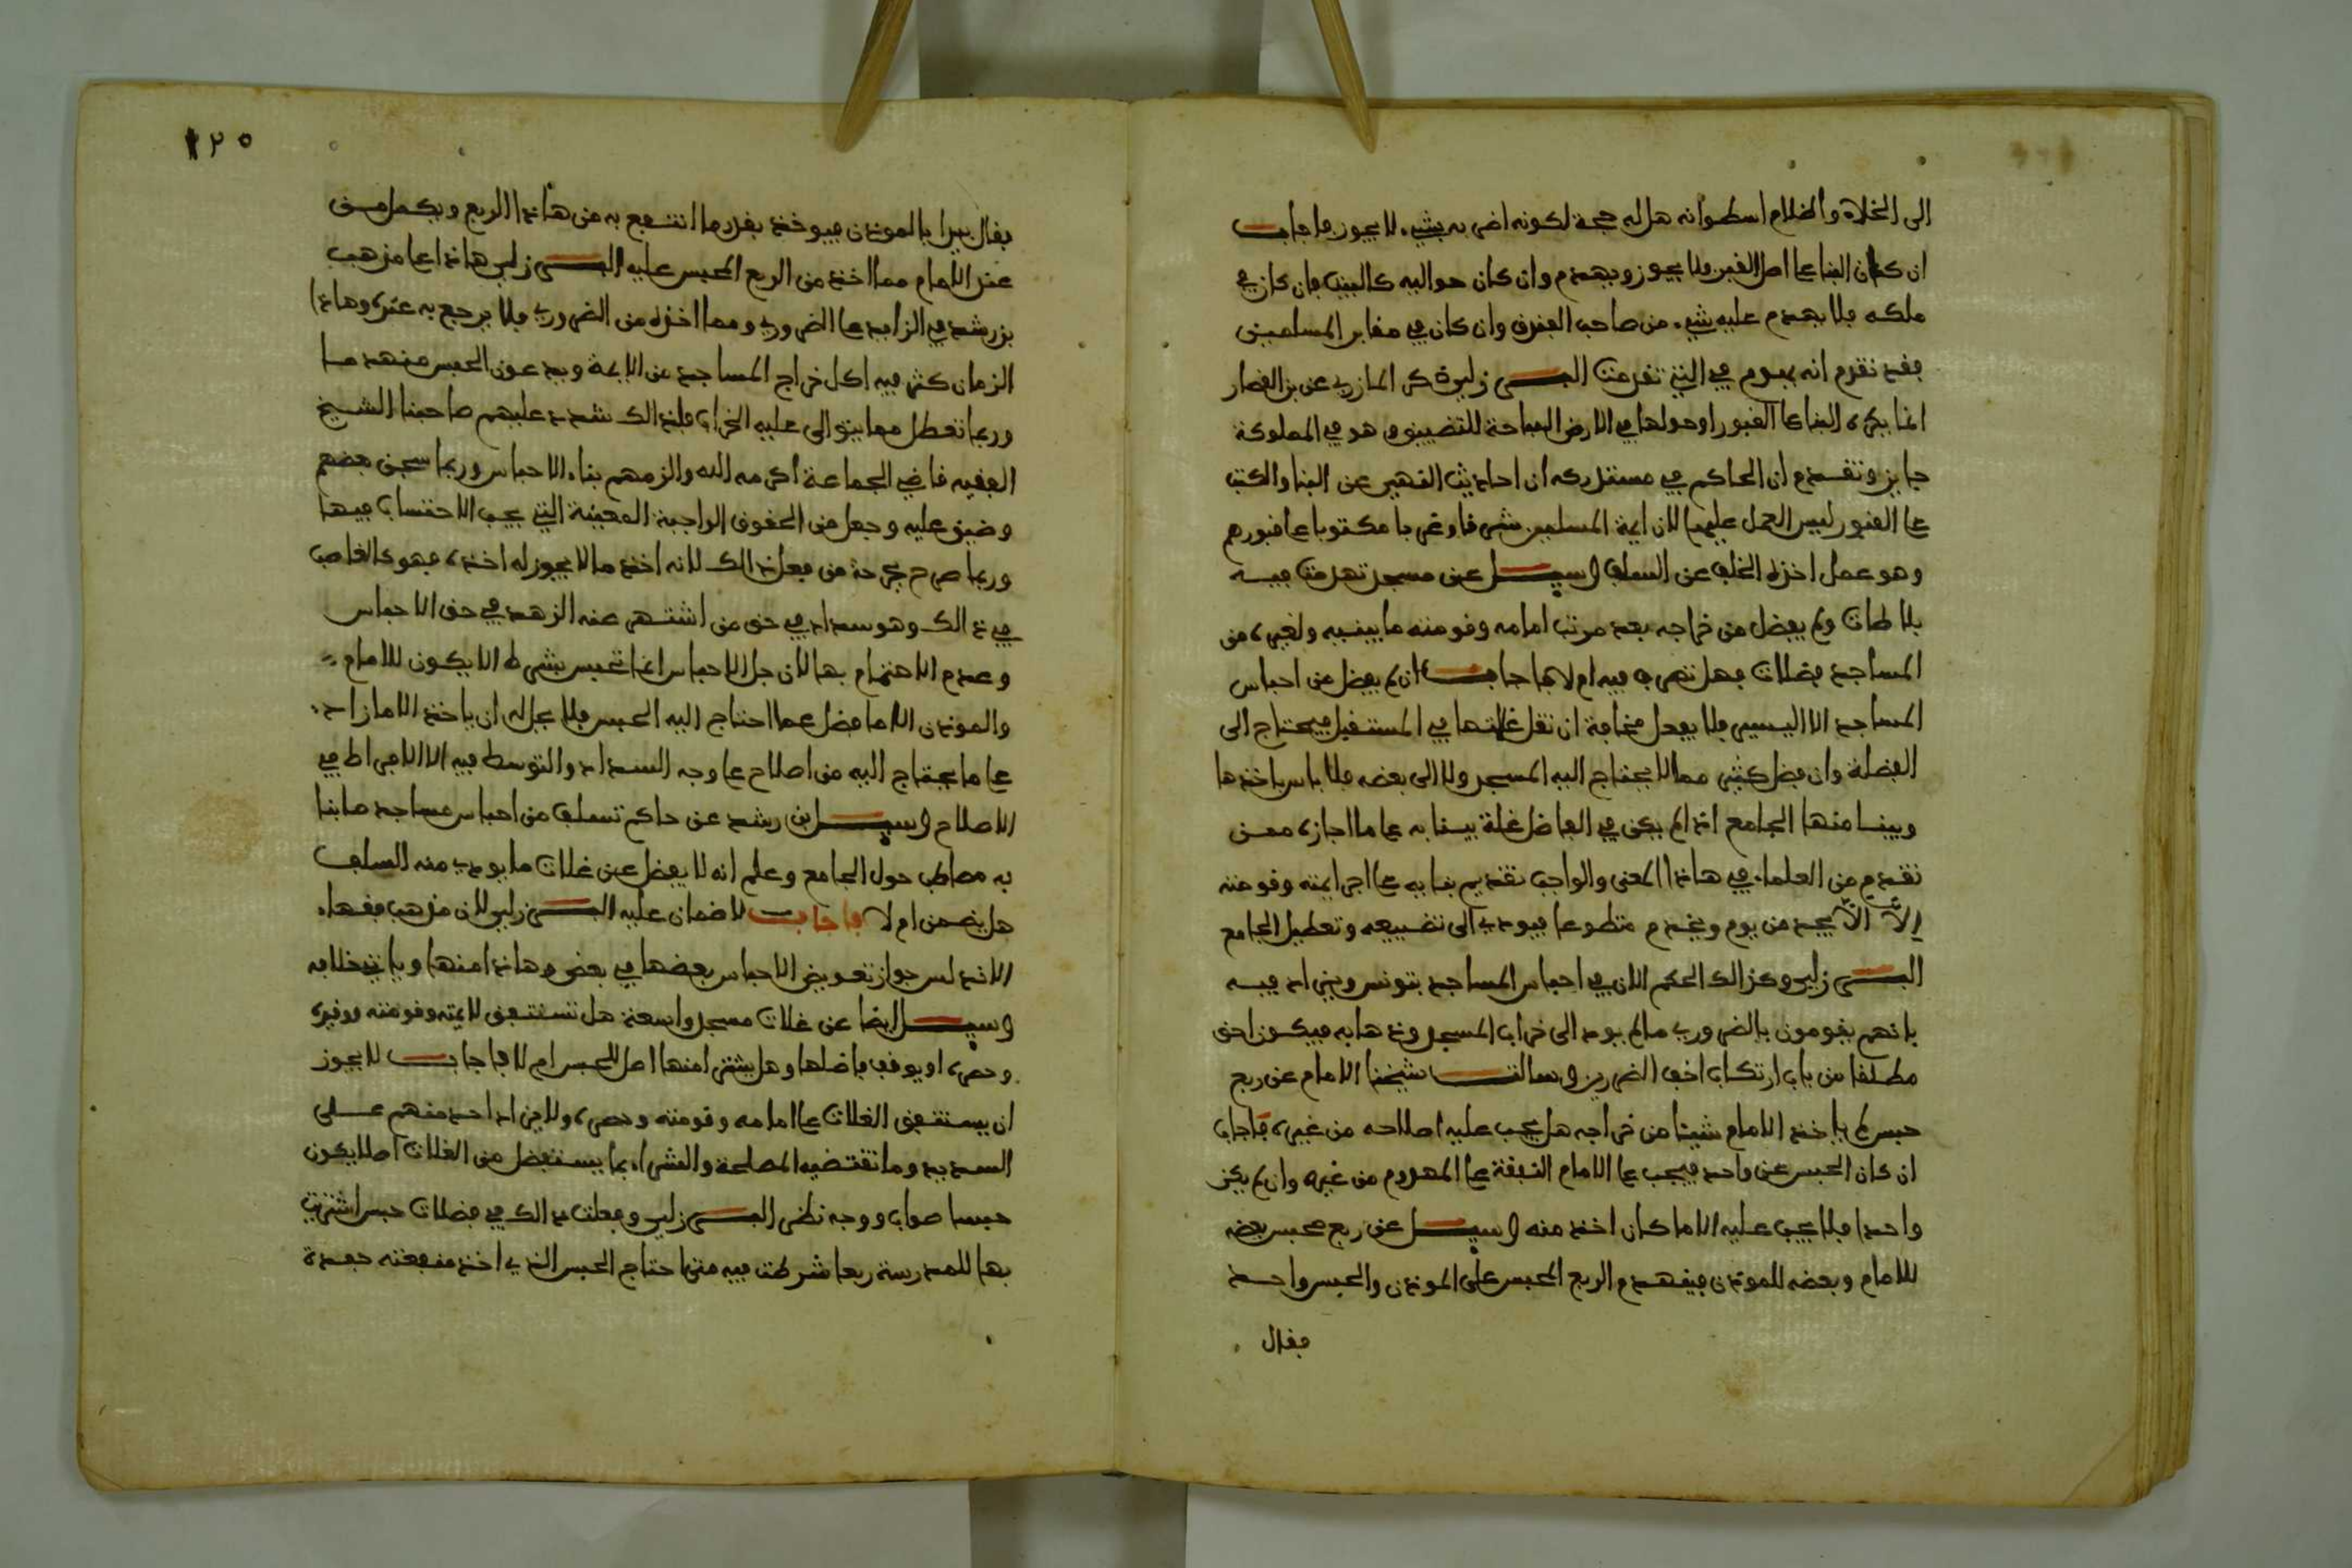 الى الخلاة والظلام اسطوانه هل له حجة لكونه اضر به بشيء لا يجوز فاجاب
ان كان البنا على اصل القبر فلا يجوز ويهدم وان كان حواليه كالبيت فان كان في
ملكه فلا يهدم عليه شيء من صاحب القبر وان كان في مقابر المسلمين
فقد تقدم انه يهدم في التي تقدمت البرزلي ذكر المازري عن بن القصار
انما يكره البنا على القبور او حولها في الارض المباحة للتضييق هو في المملوكة
جايز وتقدم ان الحاكم في مستدركه ان احاديث النهي عن البنا والكتب
على القبور ليس العمل عليها لان ايمة المسلمين شرقا وغربا مكتوبا على قبورهم
وهو عمل اخذه الخلف عن السلف وسيل عن مسجد تهدمت فيه
بلاطات ولم يفضل من خراجه بعد مرتب امامه وقومته ما يبنيه ولغيره من
المساجد فضلات فهل تصرف فيه ام لا فاجاب ان لم يفضل من احباس
المساجد الا اليسير فلا يفعل مخافة ان تقل غلاتها في المستقبل فيحتاج الى
الفضلة وان فضل كثير مما لا يحتاج اليه المسجد ولا الى بعضه فلا باس باخذها
ويبنا منها الجامع اذا لم يكن في الفاضل غلة يبنا به على ما اجازه من
تقدم من العلماء في هاذا المعنى والواجب تقديم بنايه على اجر ايمته وقومته
الا الا يجد من يوم ويخدم متطوعا فيودي الى تضييعه وتعطيل الجامع
البرزلي وكذالك الحكم الان في احباس المساجد بتونس ويزاد فيه
بانهم يقومون بالضروري ما لم يود الى خراب المسجد وذهابه فيكون احق
مطلقا من باب ارتكاب اخف الضررين وسالت شيخنا الامام عن ربع
حبس لم ياخذ الامام شيئا من خراجه هل يجب عليه اصلاحه من غيره فاجاب
ان كان الحبس عن واحد فيجب على الامام النفقة على المهدوم من غيره وان لم يكن
واحدا فلا يجب عليه الا ما كان اخذ منه وسيل عن ربع محبس بعضه
للامام وبعضه للموذن فينهدم الربع المحبس على الموذن والحبس واحد
فقال
١٢٥
فقال يبدا بالموذن فيوخذ بقدر ما انتفع به من هاذا الربع ويكمل من
عند الامام مما اخذ من الربع المحبس عليه البرزلي هاذا على مذهب
بن رشد في الزايد على الضروري ومما اخذه من الضروري فلا يرجع به عنده وهاذا
الزمان كثر فيه اكل خراج المساجد من الايمة ويدعون الحبس منهدما
وربما تعطل مما يتوالى عليه الخراب فلذالك شدد عليهم صاحبنا الشيخ
الفقيه قاضي الجماعة اكرمه الله والزمهم بناء الاحباس وربما سجن بعضهم
وضيق عليه وجعل من الحقوق الواجبة المعينة التي يجب الاحتساب فيها
وربما صرح بجرحة من فعل ذالك لانه اخذ ما لا يجوز له اخذه فهو كالغاصب
في ذالك وهو سداد في حق من اشتهر عنه الزهد في حق الاحباس
وعدم الاهتمام بها لان جل الاحباس انما تحبس بشرط الا يكون للامام
والموذن الا ما فضل عما احتاج اليه الحبس فلا يحل له ان ياخذ الا ما زاد
على ما يحتاج اليه من اصلاح على وجه السداد والتوسط فيه الا الافراط في
الاصلاح وسيل ابن رشد عن حاكم تسلف من احباس مساجد ما بنا
به مصاطب حول الجامع وعلم انه لا يفضل عن غلات ما يودي منه السلف
هل يضمن ام لا فاجاب لا ضمان عليه البرزلي لان مذهب فقهاء
الاندلس جواز تعويض الاحباس بعضها في بعض وهاذا منها وياتي خلافه
وسيل ايضا عن غلات مسجد واسعة هل تستنفق لايمته وقومته ووقيده
وحصره او يوقف فاضلها وهل يشترا منها اصل للحبس ام لا فاجاب لا يجوز
ان يستنفق الغلات على امامه وقومته وحصره ولا يزاد احد منهم على
السديد وما تقتضيه المصلحة والشراء بما يستفضل من الغلات اصلا يكون
حبسا صواب ووجه نظر البرزلي وفعلت ذالك في فضلات حبس اشتريت
بها للمدرسة ربعا شرطت فيه متى احتاج الحبس الذي اخذ منفعته جعدة